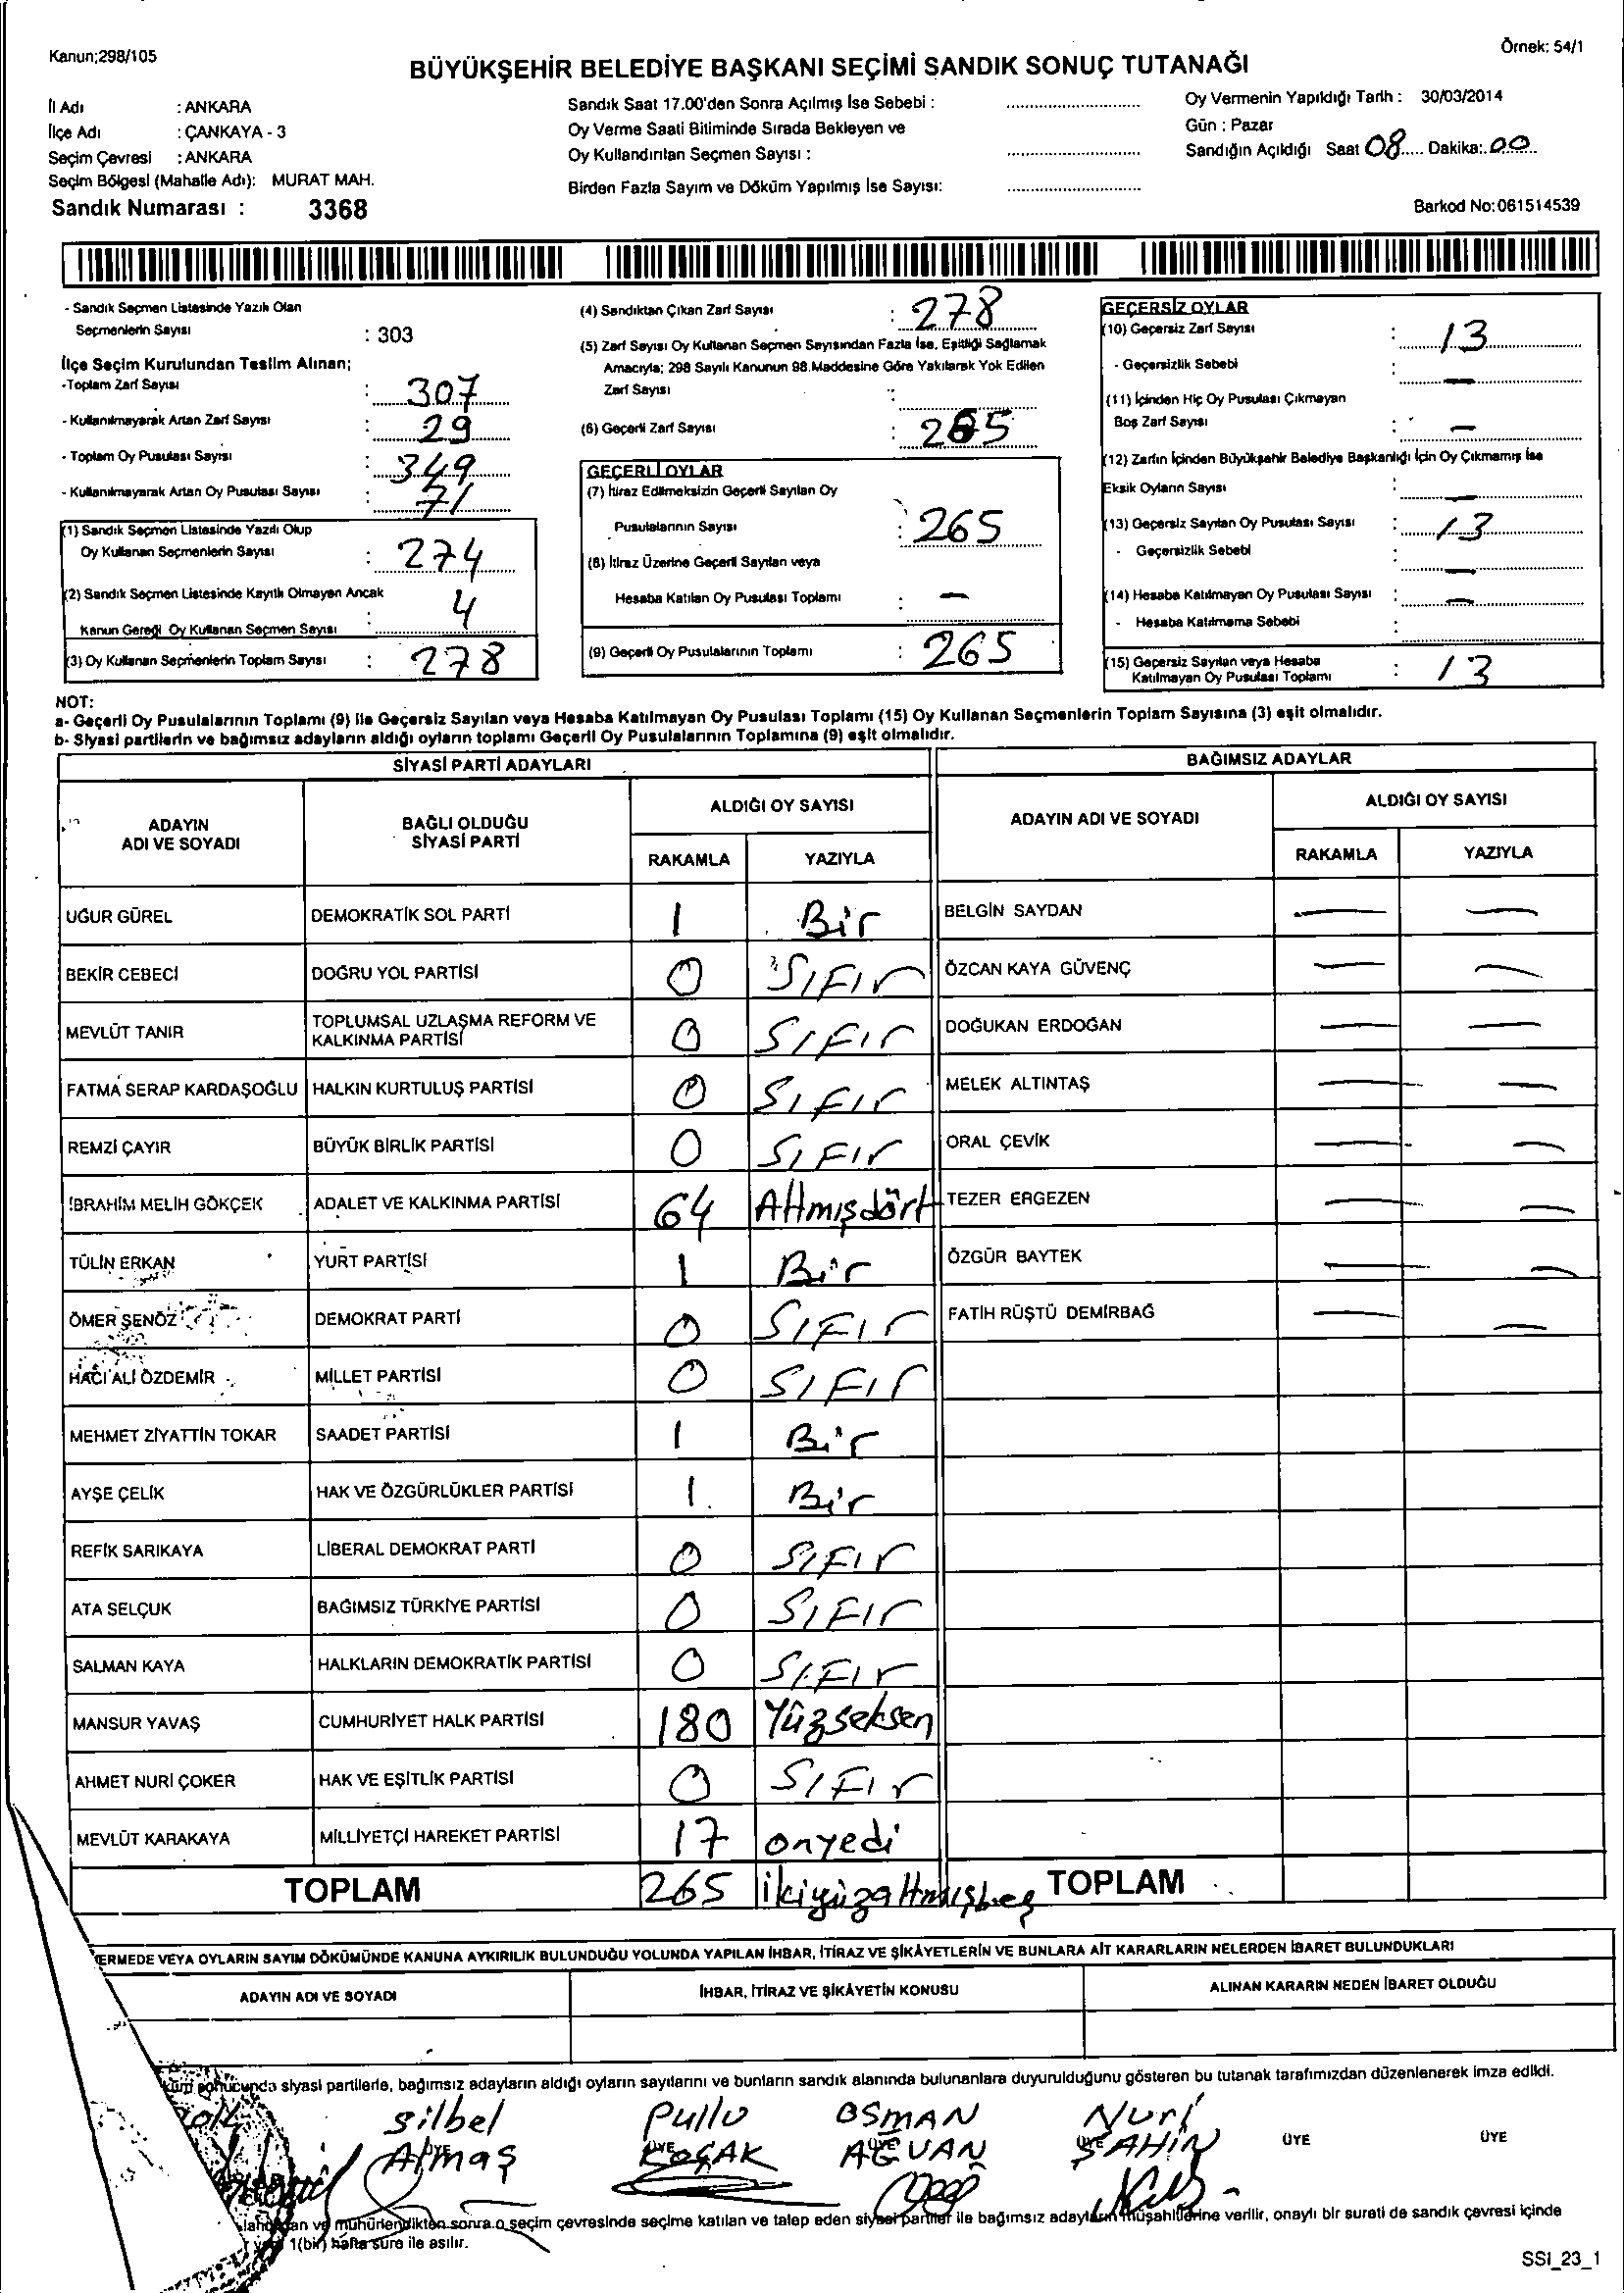 Kanun;298/105
Örnek: 54/1
BÜYÜKŞEHİR BELEDİYE BAŞKANI SEÇİMİ SANDIK SONUÇ TUTANAĞI
İl Adı : ANKARA
İlçe Adı : ÇANKAYA - 3
Seçim Çevresi : ANKARA
Seçim Bölgesi (Mahalle Adı): MURAT MAH.
Sandık Numarası : 3368
Sandık Saat 17.00'den Sonra Açılmış İse Sebebi :
Oy Verme Saati Bitiminde Sırada Bekleyen ve
Oy Kullandırılan Seçmen Sayısı :
Birden Fazla Sayım ve Döküm Yapılmış İse Sayısı:
Oy Vermenin Yapıldığı Tarih : 30/03/2014
Gün : Pazar
Sandığın Açıldığı Saat 08 Dakika: 00
Barkod No:061514539
- Sandık Seçmen Listesinde Yazılı Olan
Seçmenlerin Sayısı : 303
İlçe Seçim Kurulundan Teslim Alınan;
-Toplam Zarf Sayısı : 307
- Kullanılmayarak Artan Zarf Sayısı : 29
- Toplam Oy Pusulası Sayısı : 349
- Kullanılmayarak Artan Oy Pusulası Sayısı : 71
(1) Sandık Seçmen Listesinde Yazılı Olup
Oy Kullanan Seçmenlerin Sayısı : 274
(2) Sandık Seçmen Listesinde Kayıtlı Olmayan Ancak
Kanun Gereği Oy Kullanan Seçmen Sayısı : 4
(3) Oy Kullanan Seçmenlerin Toplam Sayısı : 278
(4) Sandıktan Çıkan Zarf Sayısı : 278
(5) Zarf Sayısı Oy Kullanan Seçmen Sayısından Fazla İse, Eşitliği Sağlamak
Amacıyla; 298 Sayılı Kanunun 98.Maddesine Göre Yakılarak Yok Edilen
Zarf Sayısı :
(6) Geçerli Zarf Sayısı : 265
GEÇERLİ OYLAR
(7) İtiraz Edilmeksizin Geçerli Sayılan Oy
Pusulalarının Sayısı : 265
(8) İtiraz Üzerine Geçerli Sayılan veya
Hesaba Katılan Oy Pusulası Toplamı : –
(9) Geçerli Oy Pusulalarının Toplamı : 265
GEÇERSİZ OYLAR
(10) Geçersiz Zarf Sayısı : 13
- Geçersizlik Sebebi : –
(11) İçinden Hiç Oy Pusulası Çıkmayan
Boş Zarf Sayısı : –
(12) Zarfın İçinden Büyükşehir Belediye Başkanlığı İçin Oy Çıkmamış İse
Eksik Oyların Sayısı : –
(13) Geçersiz Sayılan Oy Pusulası Sayısı : 13
- Geçersizlik Sebebi : –
(14) Hesaba Katılmayan Oy Pusulası Sayısı : –
- Hesaba Katılmama Sebebi :
(15) Geçersiz Sayılan veya Hesaba
Katılmayan Oy Pusulası Toplamı : 13
NOT:
a- Geçerli Oy Pusulalarının Toplamı (9) ile Geçersiz Sayılan veya Hesaba Katılmayan Oy Pusulası Toplamı (15) Oy Kullanan Seçmenlerin Toplam Sayısına (3) eşit olmalıdır.
b- Siyasi partilerin ve bağımsız adayların aldığı oyların toplamı Geçerli Oy Pusulalarının Toplamına (9) eşit olmalıdır.
SİYASİ PARTİ ADAYLARI
ADAYIN ADI VE SOYADI
BAĞLI OLDUĞU SİYASİ PARTİ
ALDIĞI OY SAYISI
RAKAMLA YAZIYLA
UĞUR GÜREL DEMOKRATİK SOL PARTİ 1 Bir
BEKİR CEBECİ DOĞRU YOL PARTİSİ 0 SIFIr
MEVLÜT TANIR TOPLUMSAL UZLAŞMA REFORM VE KALKINMA PARTİSİ 0 SIFIr
FATMA SERAP KARDAŞOĞLU HALKIN KURTULUŞ PARTİSİ 0 SIFIr
REMZİ ÇAYIR BÜYÜK BİRLİK PARTİSİ 0 SIFIr
İBRAHİM MELİH GÖKÇEK ADALET VE KALKINMA PARTİSİ 64 Altmışdört
TÜLİN ERKAN YURT PARTİSİ 1 Bir
ÖMER ŞENÖZ DEMOKRAT PARTİ 0 SIFIr
HACI ALİ ÖZDEMİR MİLLET PARTİSİ 0 SIFIr
MEHMET ZİYATTİN TOKAR SAADET PARTİSİ 1 Bir
AYŞE ÇELİK HAK VE ÖZGÜRLÜKLER PARTİSİ 1 Bir
REFİK SARIKAYA LİBERAL DEMOKRAT PARTİ 0 SIFIr
ATA SELÇUK BAĞIMSIZ TÜRKİYE PARTİSİ 0 SIFIr
SALMAN KAYA HALKLARIN DEMOKRATİK PARTİSİ 0 SIFIr
MANSUR YAVAŞ CUMHURİYET HALK PARTİSİ 180 Yüzseksen
AHMET NURİ ÇOKER HAK VE EŞİTLİK PARTİSİ 0 SIFIr
MEVLÜT KARAKAYA MİLLİYETÇİ HAREKET PARTİSİ 17 onyedi
TOPLAM 265 ikiyüzaltmışbeş
BAĞIMSIZ ADAYLAR
ADAYIN ADI VE SOYADI
ALDIĞI OY SAYISI
RAKAMLA YAZIYLA
BELGİN SAYDAN — —
ÖZCAN KAYA GÜVENÇ — —
DOĞUKAN ERDOĞAN — —
MELEK ALTINTAŞ — —
ORAL ÇEVİK — —
TEZER ERGEZEN — —
ÖZGÜR BAYTEK — —
FATİH RÜŞTÜ DEMİRBAĞ — —
TOPLAM
ERMEDE VEYA OYLARIN SAYIM DÖKÜMÜNDE KANUNA AYKIRILIK BULUNDUĞU YOLUNDA YAPILAN İHBAR, İTİRAZ VE ŞİKÂYETLERİN VE BUNLARA AİT KARARLARIN NELERDEN İBARET BULUNDUKLARI
ADAYIN ADI VE SOYADI İHBAR, İTİRAZ VE ŞİKÂYETİN KONUSU ALINAN KARARIN NEDEN İBARET OLDUĞU
sonucunda siyasi partilerle, bağımsız adayların aldığı oyların sayılarını ve bunların sandık alanında bulunanlara duyurulduğunu gösteren bu tutanak tarafımızdan düzenlenerek imza edildi.
Silbel Pullu OSMAN Nuri
Almaş KOÇAK AĞUAN ŞAHİN
ÜYE ÜYE ÜYE ÜYE ÜYE ÜYE
an ve mühürlendikten sonra o seçim çevresinde seçime katılan ve talep eden siyasi partiler ile bağımsız adayların müşahitlerine verilir, onaylı bir sureti de sandık çevresi içinde
1(bir) hafta süre ile asılır.
SSI_23_1